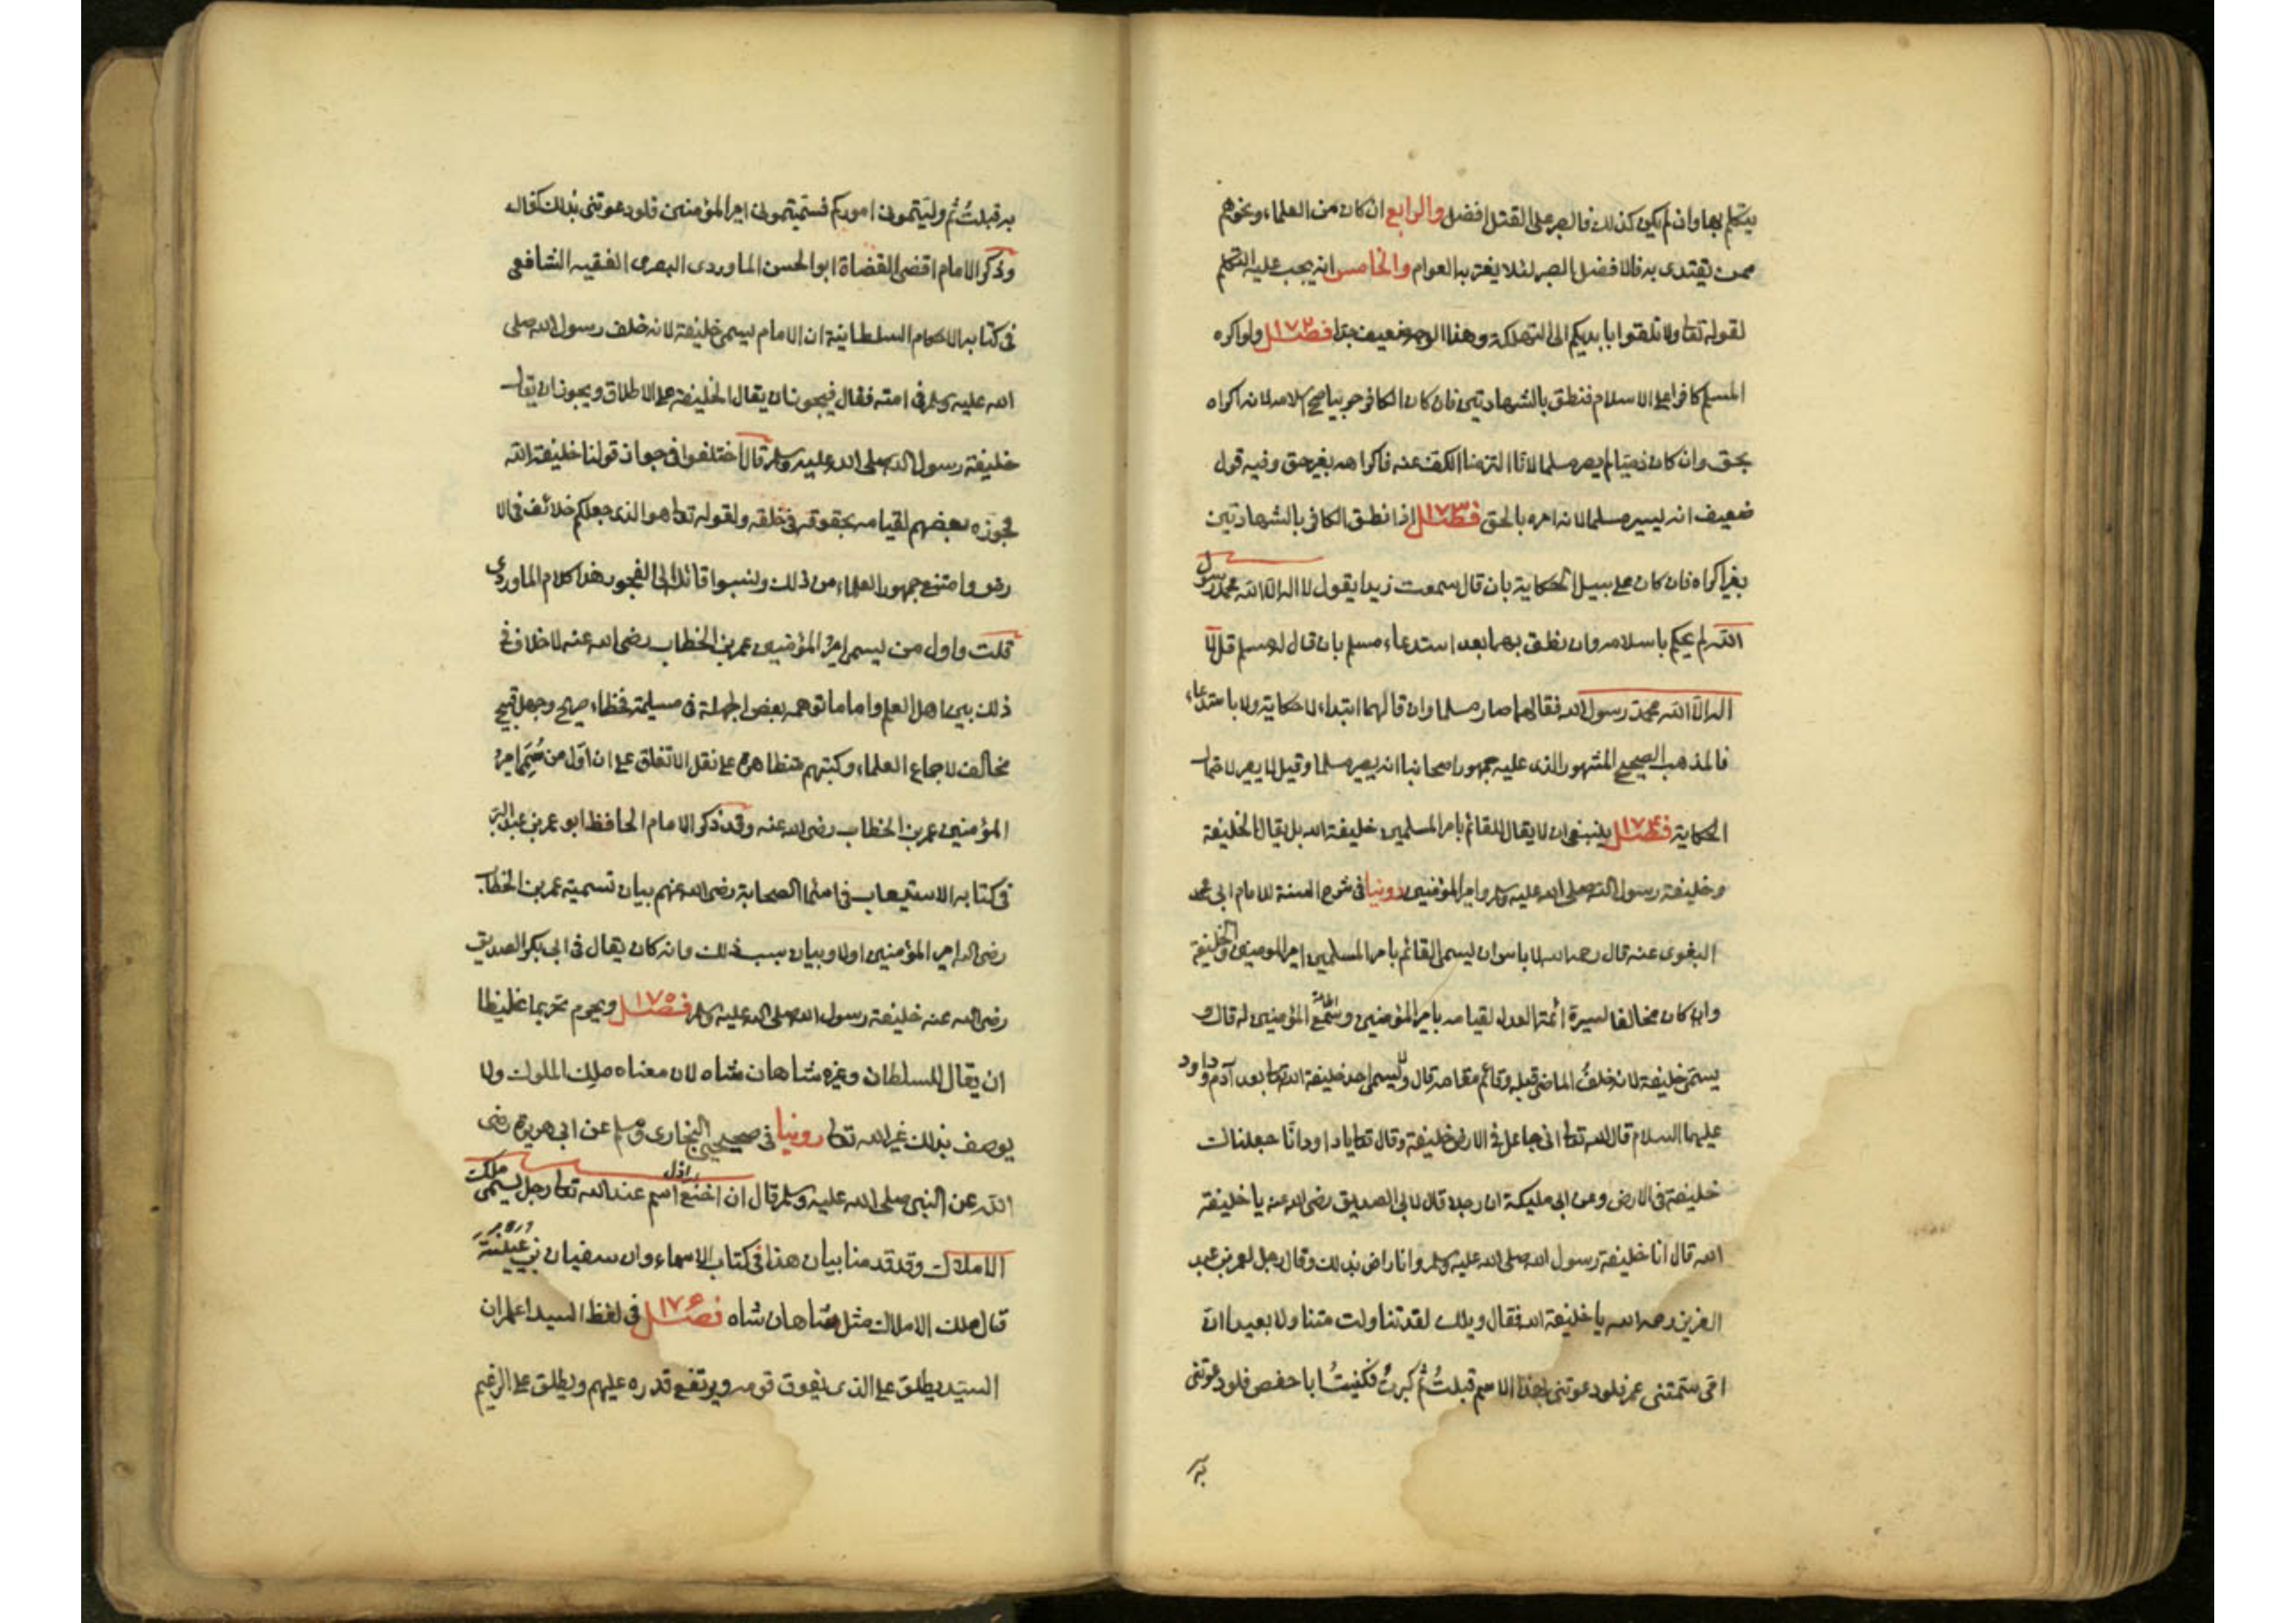 يتكلم بها وان لم يكن كذلك فالصبر على القتل افضل والرابع ان كان من العلماء ونحوهم
ممن يقتدى به فالافضل الصبر لئلا يغتر به العوام والخامس انه يجب عليه التكلم
لقوله تعا ولا تلقوا بايديكم الى التهلكة وهذا الوجه ضعيف جدا فصل ١٧٢ ولو اكره
المسلم كافرا على الاسلام فنطق بالشهادتين فان كان الكافر حربيا صح اسلامه لانه اكراه
بحق وان كان ذميا لم يصر مسلما لانا التزمنا الكف عنه فاكراهه بغير حق وفيه قول
ضعيف انه يصير مسلما لانه امره بالحق فصل ١٧٣ اذا نطق الكافر بالشهادتين
بغير اكراه فان كان على سبيل الحكاية بان قال سمعت زيدا يقول لا اله الا الله محمد رسول
الله لم يحكم باسلامه وان نطق بهما بعد استدعاء مسلم بان قال له مسلم قل لا
اله الا الله محمد رسول الله فقالهما صار مسلما وان قالهما ابتداء لا حكاية ولا باستدعاء
فالمذهب الصحيح المشهور الذى عليه جمهور اصحابنا انه يصير مسلما وقيل لا يصير لاحتمال
الحكاية فصل ١٧٤ ينبغى ان لا يقال للقائم بامر المسلمين خليفة الله بل يقال الخليفة
وخليفة رسول الله صلى الله عليه وسلم وامير المؤمنين روينا فى شرح السنة للامام ابى محمد
البغوى عنه قال رحمه الله لا باس ان يسمى القائم بامر المسلمين امير المومنين والخليفة
وان كان مخالفا لسيرة ائمة العدل لقيامه بامر المؤمنين وسمع المؤمنين له قال و
يسمى خليفة لانه خلف الماضى قبله وقائم مقامه قال ولا يسمى احد خليفة الله تعا بعد آدم وداود
عليهما السلام قال الله تعا انى جاعل فى الارض خليفة وقال تعا يا داود انا جعلناك
خليفة فى الارض وعن ابى مليكة ان رجلا قال لابى الصديق رضى الله عنه يا خليفة
الله قال انا خليفة رسول الله صلى الله عليه وسلم وانا راض بذلك وقال رجل لعمر بن عبد
العزيز رحمه الله يا خليفة الله فقال ويلك لقد تناولت متناولا بعيدا ان
امى سمتنى عمر فلو دعوتنى بهذا الاسم قبلت ثم كبرت فكنيت ابا حفص فلو دعوتنى
به
به قبلت ثم وليتمونى اموركم فسميتمونى امير المؤمنين فلو دعوتنى بذلك كفاك
وذكر الامام اقضى القضاة ابو الحسن الماوردى البصرى الفقيه الشافعى
فى كتابه الاحكام السلطانية ان الامام يسمى خليفة لانه خلف رسول الله صلى
الله عليه وسلم فى امته فقال فيجوز ان يقال الخليفة على الاطلاق ويجوز ان يقال
خليفة رسول الله صلى الله عليه وسلم قال اختلفوا فى جواز قولنا خليفة الله
فجوزه بعضهم لقيامه بحقوقه فى خلقه ولقوله تعا هو الذى جعلكم خلائف فى الا
رض وامتنع جمهور العلماء من ذلك ونسبوا قائله الى الفجور هذا كلام الماوردى
قلت واول من يسمى امير المؤمنين عمر بن الخطاب رضى الله عنه لا خلاف فى
ذلك بين اهل العلم واما ما توهمه بعض الجهلة فى مسيلمة فخطاء صريح وجهل قبيح
مخالف لاجماع العلماء وكتبهم متظاهرة على نقل الاتفاق على ان اول من سمى امير
المؤمنين عمر بن الخطاب رضى الله عنه وقد ذكر الامام الحافظ ابو عمر بن عبد البر
فى كتابه الاستيعاب فى اسماء الصحابة رضى الله عنهم بيان تسمية عمر بن الخطاب
رضى الله امير المؤمنين اولا وبيان سبب ذلك وانه كان يقال فى ابى بكر الصديق
رضى الله عنه خليفة رسول الله صلى الله عليه وسلم فصل ١٧٥ ويحرم تحريما غليظا
ان يقال للسلطان وغيره شاهان شاه لان معناه ملك الملوك ولا
يوصف بذلك غير الله تعا روينا فى صحيحى البخارى ومسلم عن ابى هريرة رضى
الله عن النبى صلى الله عليه وسلم قال ان اخنع اسم عند الله تعا رجل يسمى ملك
الاملاك وقد قدمنا بيان هذا فى كتاب الاسماء وان سفيان بن عيينة
قال ملك الاملاك مثل شاهان شاه فصل ١٧٦ فى لفظ السيد اعلم ان
السيد يطلق على الذى يفوق قومه ويرتفع قدره عليهم ويطلق على الزعيم